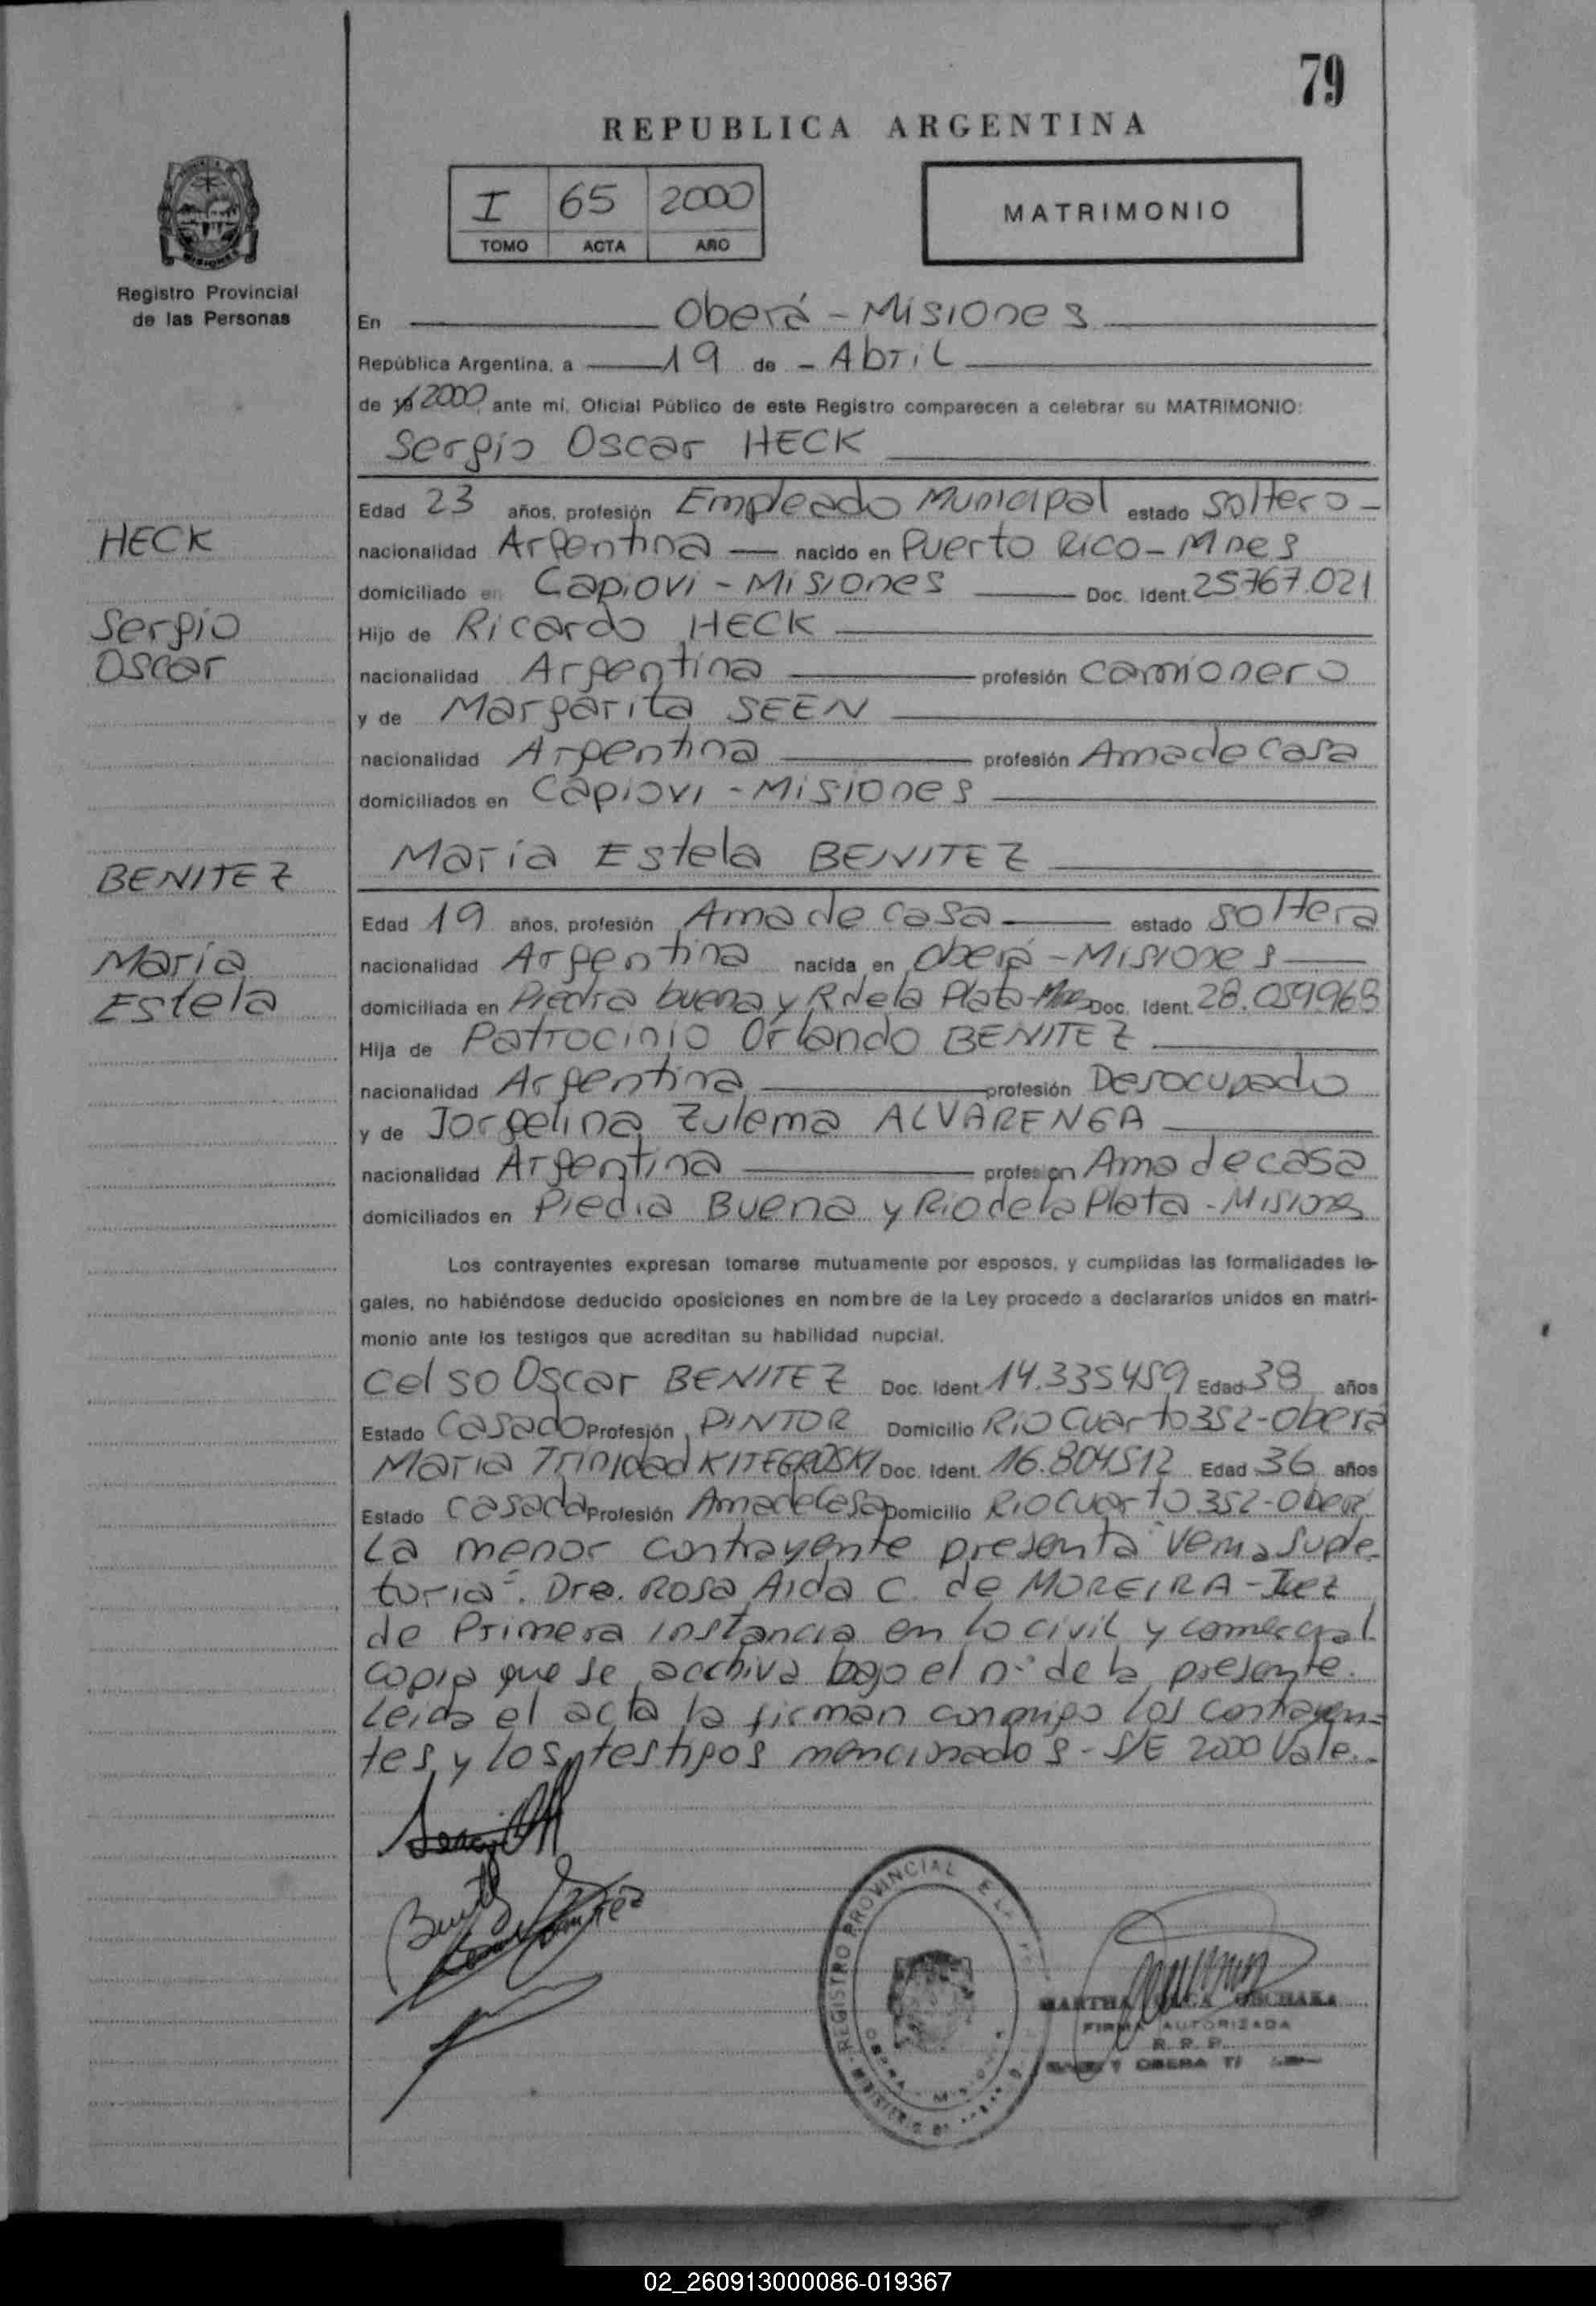 79
REPUBLICA ARGENTINA
I 65 2000
TOMO ACTA AÑO
MATRIMONIO
Registro Provincial
de las Personas
En Oberá - Misiones
República Argentina, a 19 de - Abril
de 19 2000, ante mí, Oficial Público de este Registro comparecen a celebrar su MATRIMONIO:
Sergio Oscar HECK
Edad 23 años, profesión Empleado Municipal estado soltero -
HECK
nacionalidad Argentina nacido en Puerto Rico - Mnes
domiciliado en Capiovi - Misiones Doc. Ident. 25767.021
Sergio
Hijo de Ricardo HECK
Oscar
nacionalidad Argentina profesión camionero
y de Margarita SEEN
nacionalidad Argentina profesión Ama de casa
domiciliados en Capiovi - Misiones
María Estela BENITEZ
BENITEZ
Edad 19 años, profesión Ama de casa estado soltera
María
nacionalidad Argentina nacida en Oberá - Misiones
Estela
domiciliada en Piedra buena y R de la Plata - Mnes Doc. Ident. 28.059.968
Hija de Patrocinio Orlando BENITEZ
nacionalidad Argentina profesión Desocupado
y de Jorgelina Zulema ALVARENGA
nacionalidad Argentina profesion Ama de casa
domiciliados en Piedra Buena y Rio de la Plata - Misiones
Los contrayentes expresan tomarse mutuamente por esposos, y cumplidas las formalidades le-
gales, no habiéndose deducido oposiciones en nombre de la Ley procedo a declararlos unidos en matri-
monio ante los testigos que acreditan su habilidad nupcial.
Celso Oscar BENITEZ Doc. Ident. 14.335459 Edad 38 años
Estado Casado Profesión PINTOR Domicilio Rio Cuarto 352 - Oberá
Maria Trinidad KITEGROSKI Doc. Ident. 16.804512 Edad 36 años
Estado casada Profesión Ama de Casa Domicilio Rio Cuarto 352 - Oberá
La menor contrayente presenta "Venia Suple-
toria". Dra. Rosa Aida C. de MOREIRA - Juez
de Primera instancia en lo civil y comercial
copia que se archiva bajo el nº de la presente.
Leida el acta la firman conmigo los contrayen-
tes, y los testigos mencionados - S/E 2000 Vale.-
REGISTRO PROVINCIAL
MARTHA
FIRMA AUTORIZADA
R. P. P.
OBERA
02_260913000086-019367